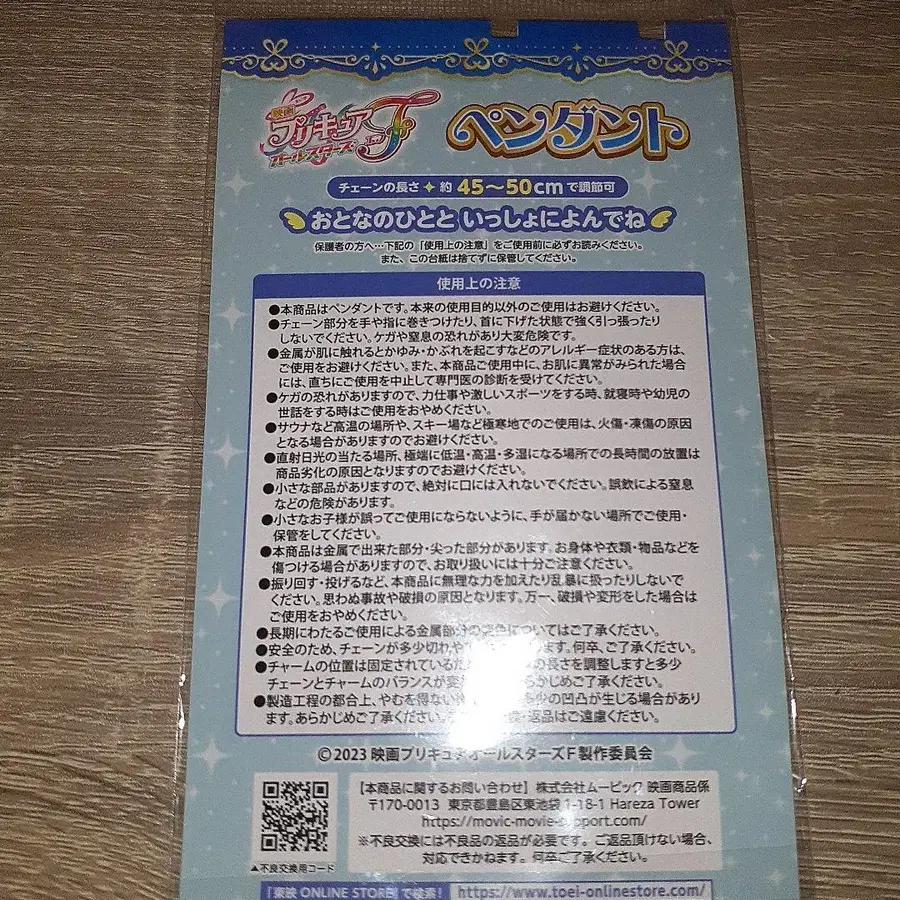 映画
プリキュア
オールスターズ
F
ペンダント
チェーンの長さ 約 45～50cmで調節可
おとなのひとと いっしょによんでね
保護者の方へ…下記の「使用上の注意」をご使用前に必ずお読みください。
また、この台紙は捨てずに保管してください。
使用上の注意
●本商品はペンダントです。本来の使用目的以外のご使用はお避けください。
●チェーン部分を手や指に巻きつけたり、首に下げた状態で強く引っ張ったり
しないでください。ケガや窒息の恐れがあり大変危険です。
●金属が肌に触れるとかゆみ・かぶれを起こすなどのアレルギー症状のある方は、
ご使用をお避けください。また、本商品ご使用中に、お肌に異常がみられた場合
には、直ちにご使用を中止して専門医の診断を受けてください。
●ケガの恐れがありますので、力仕事や激しいスポーツをする時、就寝時や幼児の
世話をする時はご使用をおやめください。
●サウナなど高温の場所や、スキー場など極寒地でのご使用は、火傷・凍傷の原因
となる場合がありますのでお避けください。
●直射日光の当たる場所、極端に低温・高温・多湿になる場所での長時間の放置は
商品劣化の原因となりますのでお避けください。
●小さな部品がありますので、絶対に口には入れないでください。誤飲による窒息
などの危険があります。
●小さなお子様が誤ってご使用にならないように、手が届かない場所でご使用・
保管をしてください。
●本商品は金属で出来た部分・尖った部分があります。お身体や衣類・物品などを
傷つける場合がありますので、お取り扱いには十分ご注意ください。
●振り回す・投げるなど、本商品に無理な力を加えたり乱暴に扱ったりしないで
ください。思わぬ事故や破損の原因となります。万一、破損や変形をした場合は
ご使用をおやめください。
●長期にわたるご使用による金属部分の変色についてはご了承ください。
●安全のため、チェーンが多少切れや ります。何卒、ご了承ください。
●チャームの位置は固定されているた の長さを調整しますと多少
チェーンとチャームのバランスが変 らかじめご了承ください。
●製造工程の都合上、やむを得ない 多少の凹凸が生じる場合があり
ます。あらかじめご了承ください。 ・返品はご遠慮ください。
©2023 映画プリキュアオールスターズF製作委員会
【本商品に関するお問い合わせ】 株式会社ムービック 映画商品係
〒170-0013 東京都豊島区東池袋1-18-1 Hareza Tower
https://movic-movie-support.com/
※不良交換には不良品の返品が必要です。ご返品頂けない場合、
対応できかねます。何卒ご了承ください。
▲不良交換用コード
「東映 ONLINE STORE」で検索! https://www.toei-onlinestore.com/